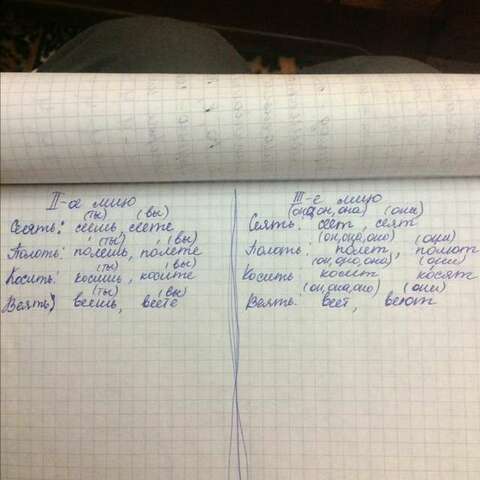 II-ое лицо
(ты) (вы)
Сеять: сеешь, сеете
(ты) (вы)
Полоть: полешь, полете
(ты) (вы)
Косить: косишь, косите
(ты) (вы)
Веять: веешь, веете
III-е лицо
(оно, он, она) (они)
Сеять: сеет, сеят
(он, она, оно) (они)
Полоть: полет, полют
(он, оно, она) (они)
Косить: косит косят
(он, она, оно) (они)
Веять: веет, веют